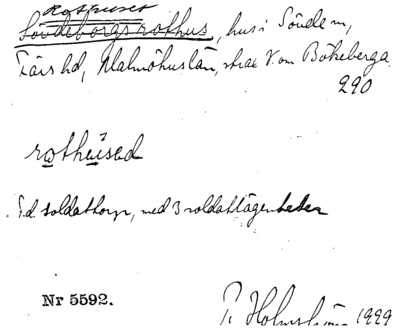 Rothuset
Sövdeborgs rothus, hus i Sövde sn,
Färs hd, Malmöhus län, strax V om Bökeberga
290
rothused
F.d. soldattorp, med 3 soldatlägenheter
Nr 5592.
1929